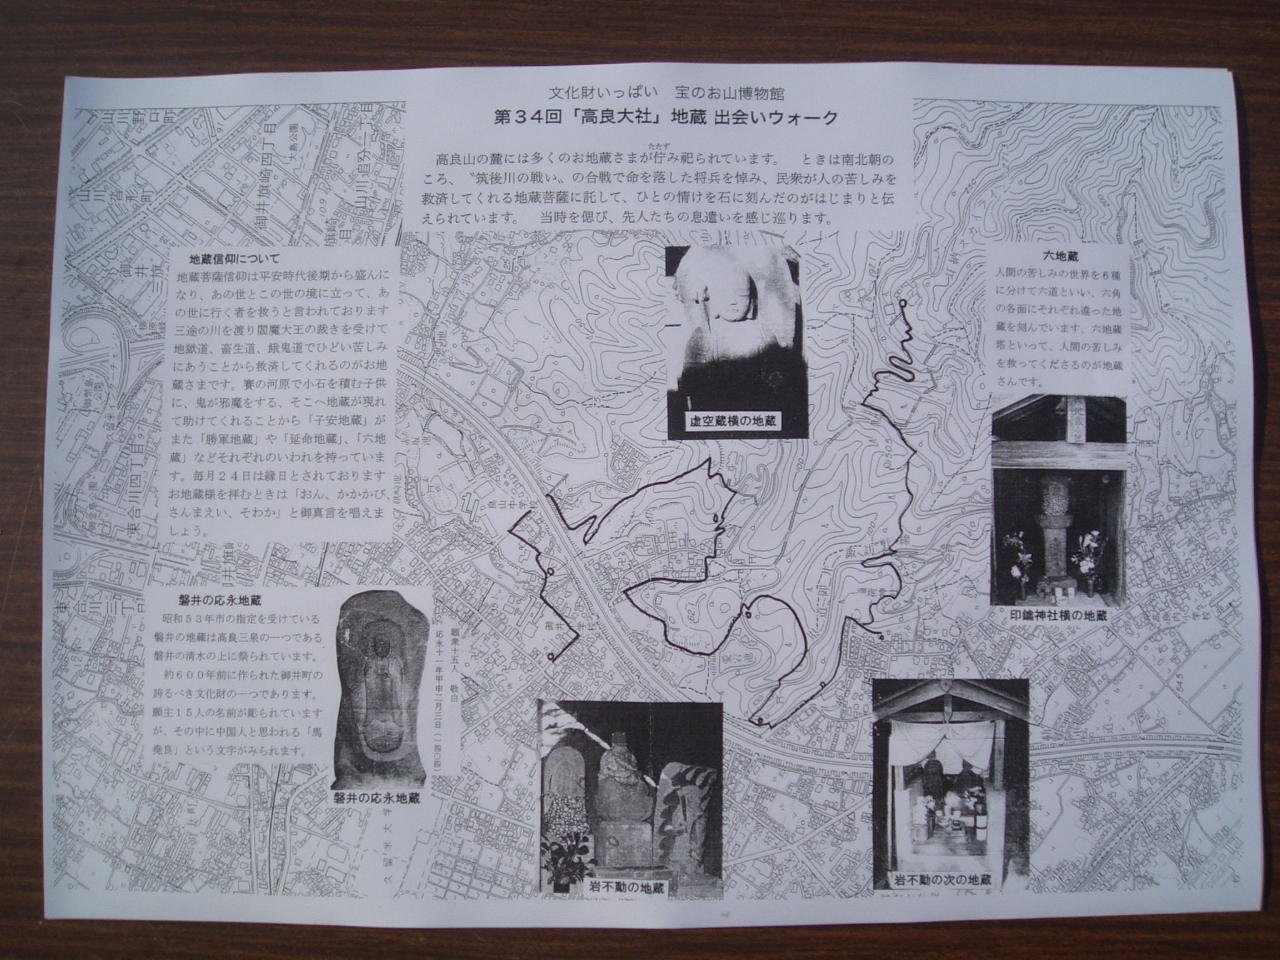 文化財いっぱい　宝のお山博物館
第３４回「高良大社」地蔵 出会いウォーク
たたず
高良山の麓には多くのお地蔵さまが佇み祀られています。　ときは南北朝の
ころ、〝筑後川の戦い〟の合戦で命を落した将兵を悼み、民衆が人の苦しみを
救済してくれる地蔵菩薩に託して、ひとの情けを石に刻んだのがはじまりと伝
えられています。　当時を偲び、先人たちの息遣いを感じ巡ります。
地蔵信仰について
地蔵菩薩信仰は平安時代後期から盛んに
なり、あの世とこの世の境に立って、あ
の世に行く者を救うと言われております
三途の川を渡り閻魔大王の裁きを受けて
地獄道、畜生道、餓鬼道でひどい苦しみ
にあうことから救済してくれるのがお地
蔵さまです。賽の河原で小石を積む子供
に、鬼が邪魔をする、そこへ地蔵が現れ
て助けてくれることから「子安地蔵」が
また「勝軍地蔵」や「延命地蔵」、「六地
蔵」などそれぞれのいわれを持っていま
す。毎月２４日は縁日とされております
お地蔵様を拝むときは「おん、かかかび、
さんまえい、そわか」と御真言を唱えま
しょう。
六地蔵
人間の苦しみの世界を６種
に分けて六道といい、六角
の各面にそれぞれ違った地
蔵を刻んでいます。六地蔵
塔といって、人間の苦しみ
を救ってくださるのが地蔵
さんです。
虚空蔵横の地蔵
印鑰神社横の地蔵
磐井の応永地蔵
昭和５３年市の指定を受けている
磐井の地蔵は高良三泉の一つである
磐井の清水の上に祭られています。
約６００年前に作られた御井町の
誇るべき文化財の一つであります。
願主１５人の名前が彫られています
が、その中に中国人と思われる「馬
堯良」という文字がみられます。
願衆十五人　敬白
応永十一年甲申二月三日（一四〇四）
磐井の応永地蔵
岩不動の地蔵
岩不動の次の地蔵
御井旗崎四丁目
東合川四丁目
東合川三丁目